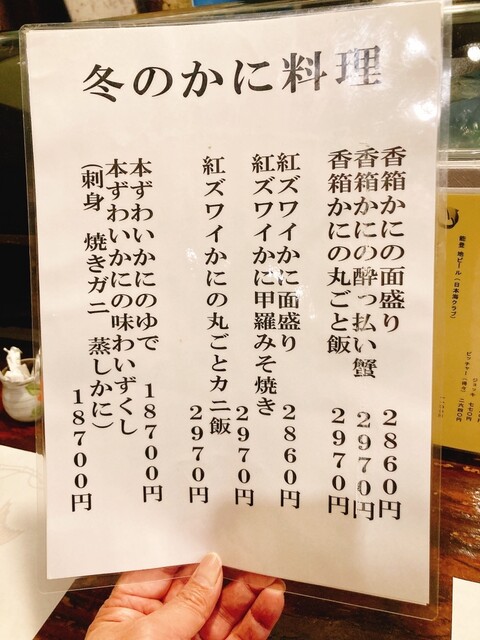 冬のかに料理
香箱かにの面盛り 2860円
香箱かにの酔っ払い蟹 2970円
香箱かにの丸ごと飯 2970円
紅ズワイかに面盛り 2860円
紅ズワイかに甲羅みそ焼き 2970円
紅ズワイかにの丸ごとカニ飯 2970円
本ずわいかにのゆで 18700円
本ずわいかにの味わいずくし
(刺身 焼きガニ 蒸しかに) 18700円
能登 地ビール(日本海クラブ)
グラス 七七〇円
ピッチャー(樽生) 二六四〇円